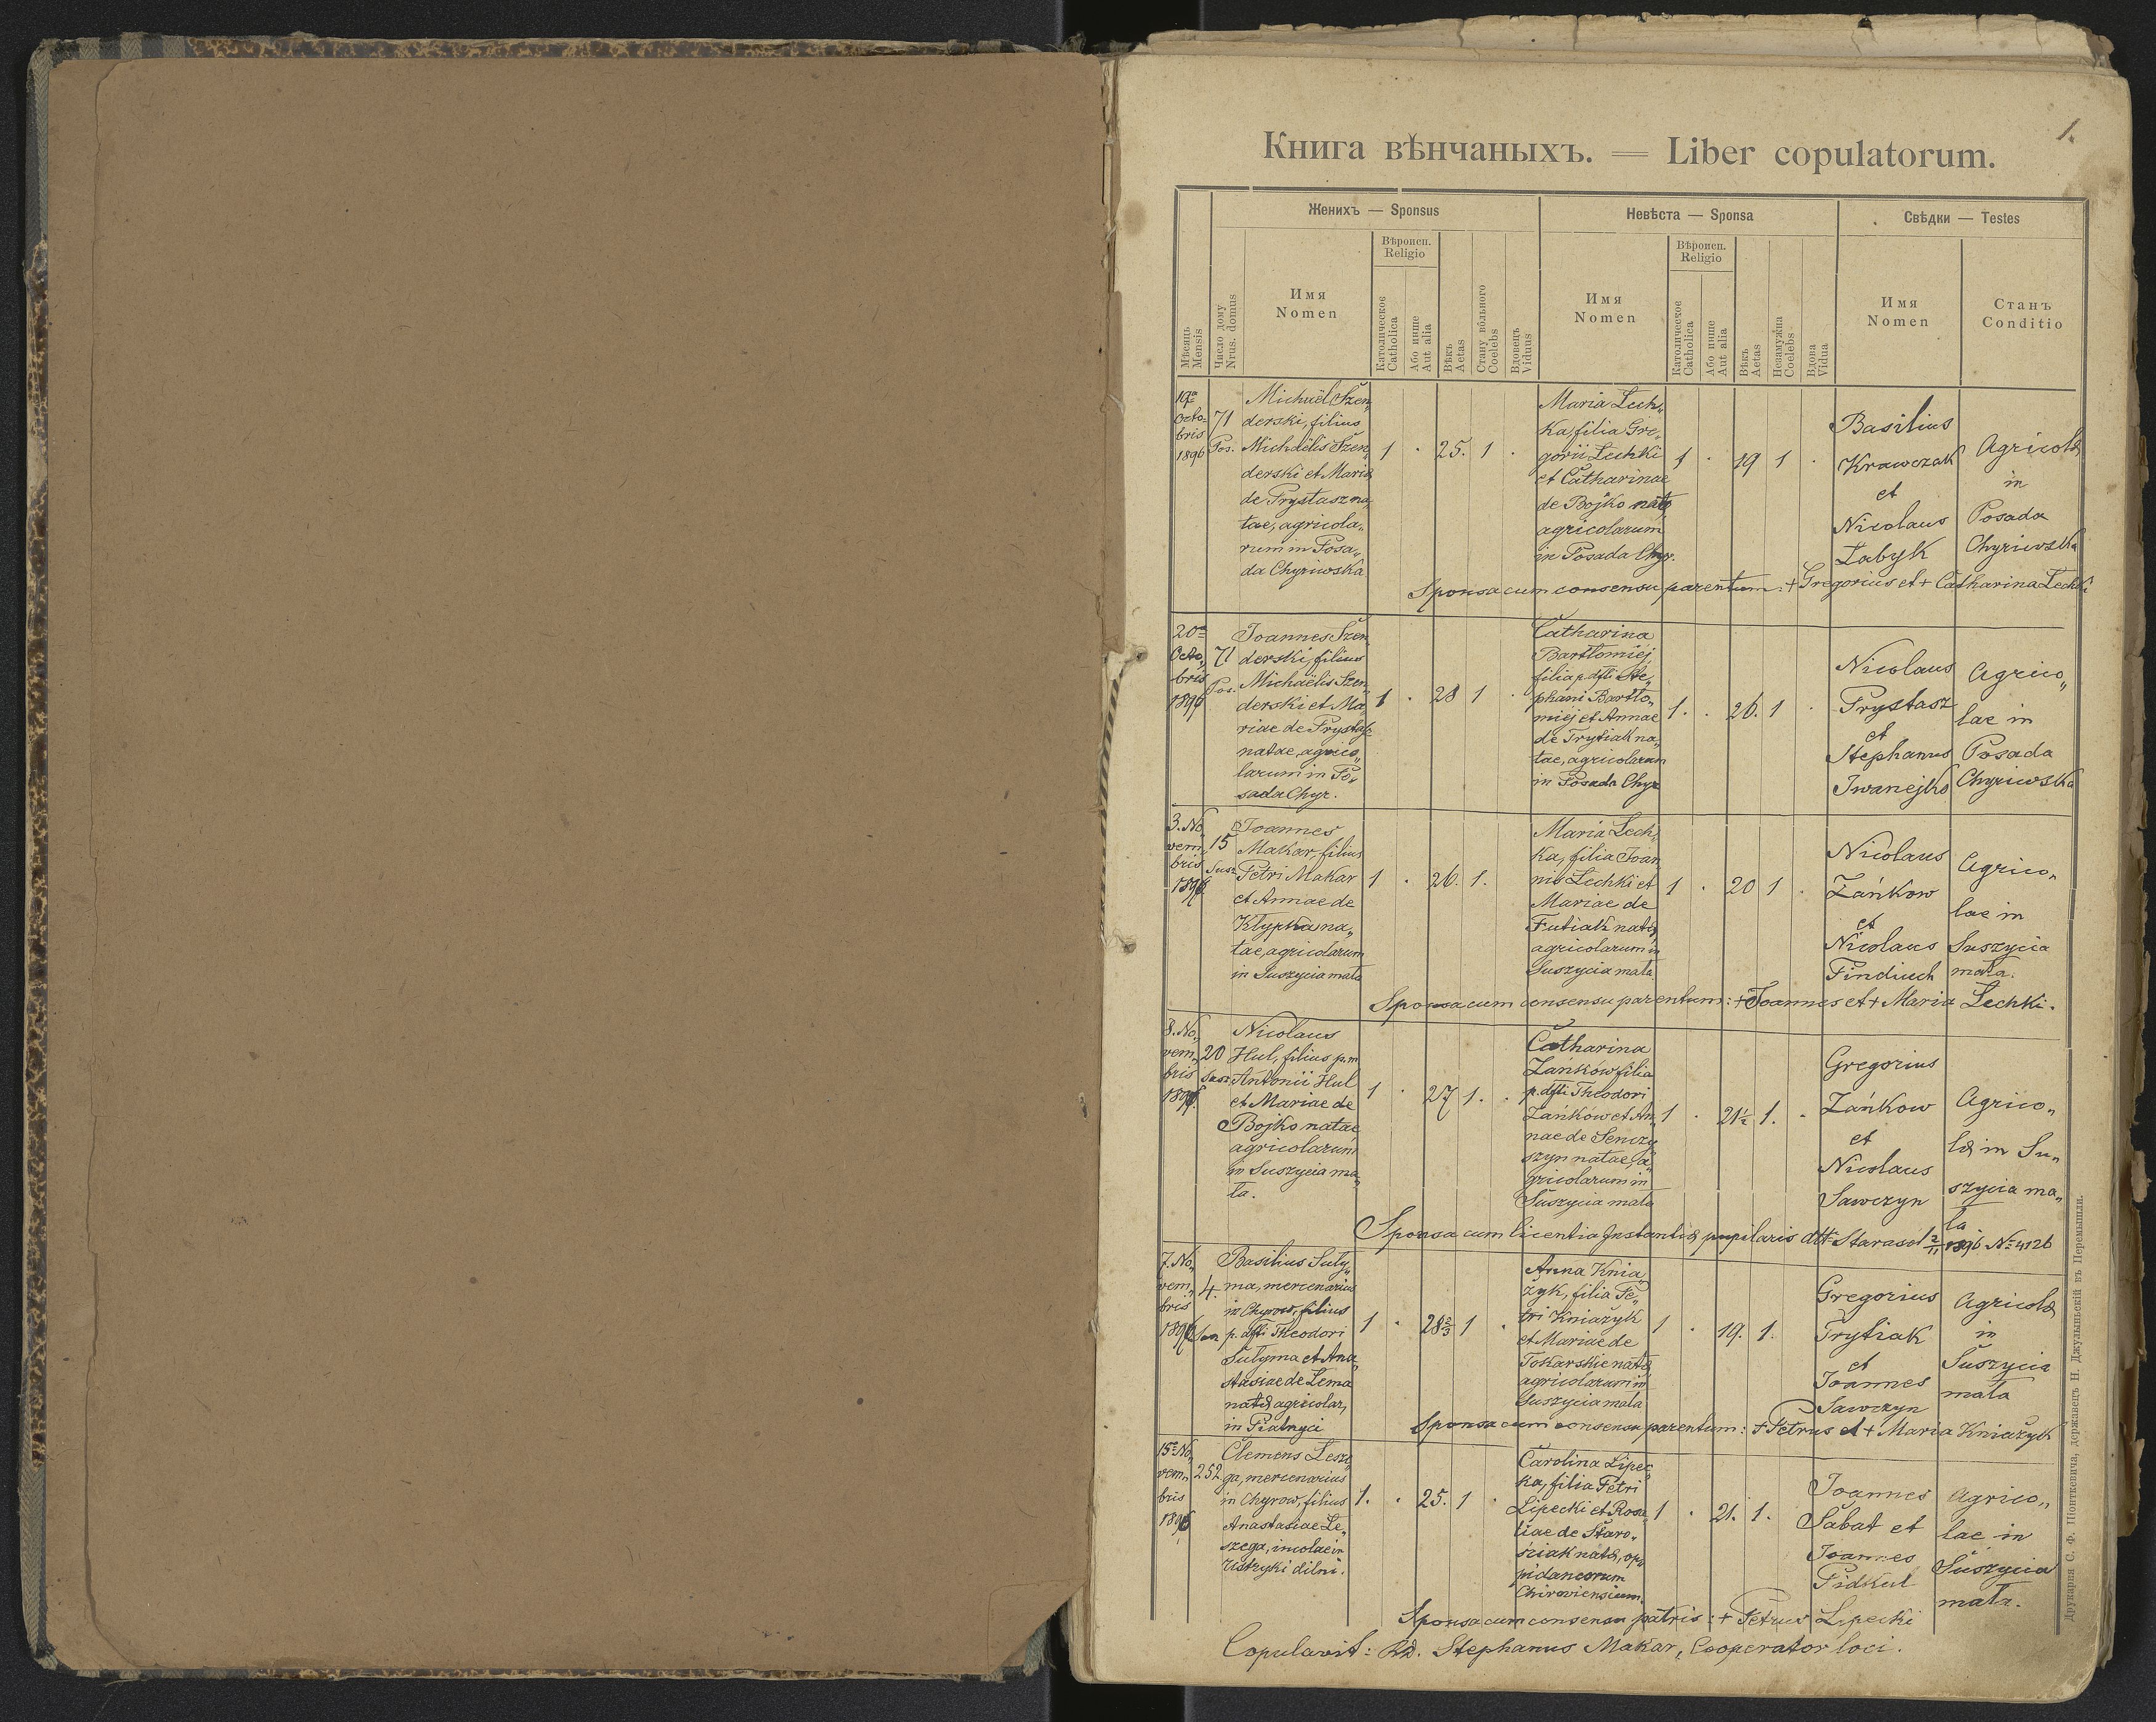 1.
Книга вѣнчаныхъ. — Liber copulatorum.
Женихъ — Sponsus
Невѣста — Sponsa
Свѣдки — Testes
Мѣсяць
Mensis
Число дому
Nrus. domus
Имя
Nomen
Вѣроисп.
Religio
Католическое
Catholica
Або инше
Aut alia
Вѣкъ
Aetas
Стану вôльного
Coelebs
Вдовець
Viduus
Имя
Nomen
Вѣроисп.
Religio
Католическое
Catholica
Або инше
Aut alia
Вѣкъ
Aetas
Незамужна
Coelebs
Вдова
Vidua
Имя
Nomen
Станъ
Conditio
19ª
Octo-
bris
1896
71
Pos.
Michaël Szen„
derski, filius
Michaëlis Szen„
derski et Mariæ
de Prystasz na„
tae, agricola„
rum in Posa„
da Chyriwska
1 · 25. 1 ·
Maria Lech„
ka, filia Gre„
gorii Lechki
et Catharinae
de Bojko natæ
agricolarum
in Posada Chyr.
1 · 19 1 ·
Basilius
Krawczak
et
Nicolaus
Łabyk
Agricolæ
in
Posada
Chyriwska
Sponsa cum consensu parentum: + Gregorius et + Catharina Lechki
20ª
Octo„
bris
1896
71
Pos.
Joannes Szen„
derski, filius
Michaëlis Szen„
derski et Ma„
riae de Prystasz
natae, agrico„
larum in Po„
sada Chyr.
1 · 28 1 ·
Catharina
Bartłomiej
filia p. dfti Ste„
phani Bartło„
miej et Annae
de Trytiak na„
tae, agricolarum
in Posada Chyr
1. · 26. 1 ·
Nicolaus
Prystasz
et
Stephanus
Iwanejko
Agrico„
lae in
Posada
Chyriwska
3. No„
vem„
bris
1896
15
Susz.
Joannes
Makar, filius
Petri Makar
et Annae de
Kłypka na„
tae, agricolarum
in Suszycia mała
1 · 26. 1.
Maria Lech„
ka, filia Joan„
nis Lechki et
Mariae de
Futiak natæ,
agricolarum in
Suszycia mała
1 · 20 1 ·
Nicolaus
Zańkow
et
Nicolaus
Findiuch
Agrico„
lae in
Suszycia
mała.
Sponsa cum consensu parentum: + Joannes et + Maria Lechki.
8. No„
vem„
bris
1896.
20
Susz.
Nicolaus
Hul, filius p.m.
Antonii Hul
et Mariae de
Bojko natae
agricolarum
in Suszycia ma„
ła.
1 · 27 1. ·
Catharina
Zańków filia
p. dfti Theodori
Zańków et An„
nae de Senczy
szyn natae, a„
gricolarum in
Suszycia mała
1 · 21½ 1. ·
Gregorius
Zańkow
et
Nicolaus
Sawczyn
Agrico„
læ in Su„
szycia ma„
ła
Sponsa cum licentia Instantiæ pupilaris dtt° Starasol 2/11 1896 № 4126
7. No„
vem„
bris
1896
4.
Basilius Suły„
ma, mercenarius
in Chyrow, filius
p. dfti Theodori
Sułyma et Ana„
stasiae de Lema
natæ agricolar„
in Piatnyci
1 · 28⅔ 1 ·
Anna Knia„
żyk, filia Pe„
tri Kniażyk
et Mariae de
Tokarskie natæ
agricolarum in
Suszycia mała
1 · 19. 1.
Gregorius
Trytiak
et
Joannes
Sawczyn
Agricolæ
in
Suszycia
mała
Sponsa cum consensu parentum: + Petrus et + Maria Kniażyk
15ª No„
vem„
bris
1896
252
Clemens Lesze„
ga, mercenarius
in Chyrow, filius
Anastasiae Le„
szega, incolae in
Ustrzyki dilni.
1. · 25. 1 ·
Carolina Lipec„
ka, filia Petri
Lipecki et Rosa„
liae de Staro„
ściak natæ, opi
pidaneorum
Chiroviensium
1 · 21. 1.
Joannes
Sabat et
Joannes
Pidkul
Agrico„
lae in
Suszycia
mała.
Sponsa cum consensu patris: + Petrus Lipecki
Copulavit: Rd. Stephanus Makar, Cooperator loci.
Друкарня С. Ф. Піонткевича, державець Н. Джулыньскій въ Перемышли.